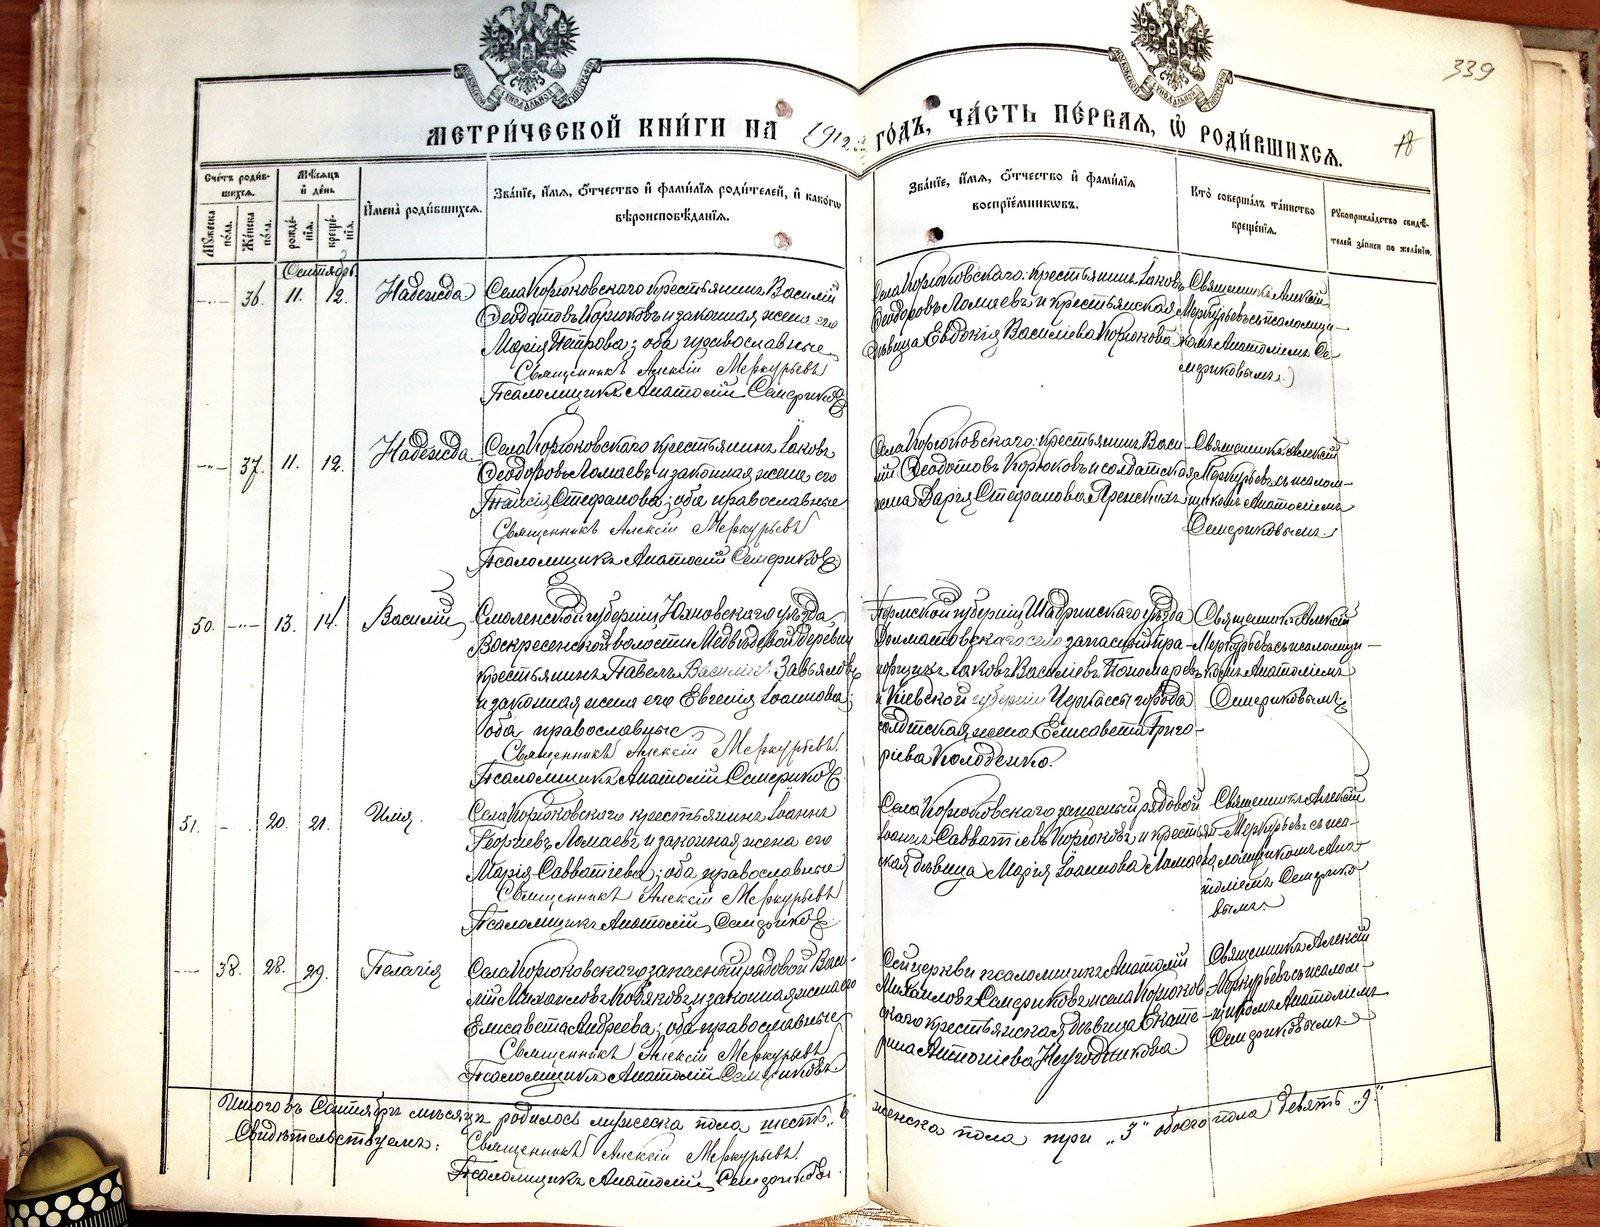 339
МЕТРИ́ЧЕСКОЙ КНИ́ГИ НА 1912 ГО́ДЪ, ЧА́СТЬ ПЕ́РВАЯ, Ѡ҆ РОДИ́ВШИХСЯ.
18
Сче́тъ роди́вшихся.
Му́жеска по́ла.
Же́нска по́ла.
Мѣ́сяцъ и҆ де́нь
рожде́нїя.
креще́нїя.
И҆мена̀ роди́вшихся.
Зва́нїе, и҆́мя, ѻ҆́тчество и҆ фамі́лїя роди́телей, и҆ како́гѡ
вѣроисповѣ́данїя.
Зва́нїе, и҆́мя, ѻ҆́тчество и҆ фамі́лїя
воспрїе́мниковъ.
Кто̀ соверша́лъ та́инство
креще́нїя.
Рꙋкоприкла́дство свидѣ́телей за́писи по жела́нїю.
Сентябрь
36. 11. 12. Надежда
Села Корюковскаго крестьянинъ Василій
Ѳеодотовъ Корюковъ и законная жена его
Марія Петрова; оба православные
Священникъ Алексій Меркурьевъ
Псаломщикъ Анатолій Семериковъ
Села Корюковскаго: крестьянинъ Іаковъ
Ѳеодоровъ Ломаевъ и крестьянская
дѣвица Евдокія Васильева Корюкова
Священникъ Алексій
Меркурьевъ съ псаломщи-
комъ Анатоліемъ Се-
мериковымъ.
37. 11. 12. Надежда
Села Корюковскаго крестьянинъ Іаковъ
Ѳеодоровъ Ломаевъ и законная жена его
Таисія Стефанова; оба православные
Священникъ Алексій Меркурьевъ
Псаломщикъ Анатолій Семериковъ
Села Корюковскаго: крестьянинъ Васи-
лій Ѳеодотовъ Корюковъ и солдатская
жена Дарія Стефанова Яренскихъ
Священникъ Алексій
Меркурьевъ съ псалом-
щикомъ Анатоліемъ
Семериковымъ.
50. 13. 14. Василій
Смоленской губерніи Юхновскаго уѣзда,
Воскресенской волости Медвѣдевой деревни
крестьянинъ Павелъ Васильевъ Завьяловъ
и законная жена его Евгенія Іоаннова;
оба православные
Священникъ Алексій Меркурьевъ
Псаломщикъ Анатолій Семериковъ
Пермской губерніи Шадринскаго уѣзда
Долматовскаго села запасный пра-
порщикъ Іаковъ Васильевъ Пономаревъ
и Кіевской губерніи Черкассы города
солдатская жена Елисавета Григо-
рьева Колоденко.
Священникъ Алексій
Меркурьевъ съ псаломщи-
комъ Анатоліемъ
Семериковымъ
51. 20. 21. Илія.
Села Корюковскаго крестьянинъ Іоаннъ
Георгіевъ Ломаевъ и законная жена его
Марія Савватіева; оба православные
Священникъ Алексій Меркурьевъ
Псаломщикъ Анатолій Семериковъ.
Села Корюковскаго запасный рядовой
Іоаннъ Савватіевъ Корюковъ и крестьян-
ская дѣвица Марія Іоаннова Ломаева
Священникъ Алексій
Меркурьевъ съ пса-
ломщикомъ Ана-
толіемъ Семерико-
вымъ.
38. 28. 29. Пелагія
Села Корюковскаго запасный рядовой Васи-
лій Михаиловъ Ковяковъ и законная жена его
Елисавета Андреева; оба православные
Священникъ Алексій Меркурьевъ
Псаломщикъ Анатолій Семериковъ
Сей церкви псаломщикъ Анатолій
Михаиловъ Семериковъ и села Корюков-
скаго крестьянская дѣвица Екате-
рина Антоніева Негодникова
Священникъ Алексій
Меркурьевъ съ псалом-
щикомъ Анатоліемъ
Семериковымъ
Итого въ Сентябрѣ мѣсяцѣ родилось мужеска пола шесть „6" женска пола три „3" обоего пола девять „9"
Свидѣтельствуемъ: Священникъ Алексій Меркурьевъ
Псаломщикъ Анатолій Семериковъ.